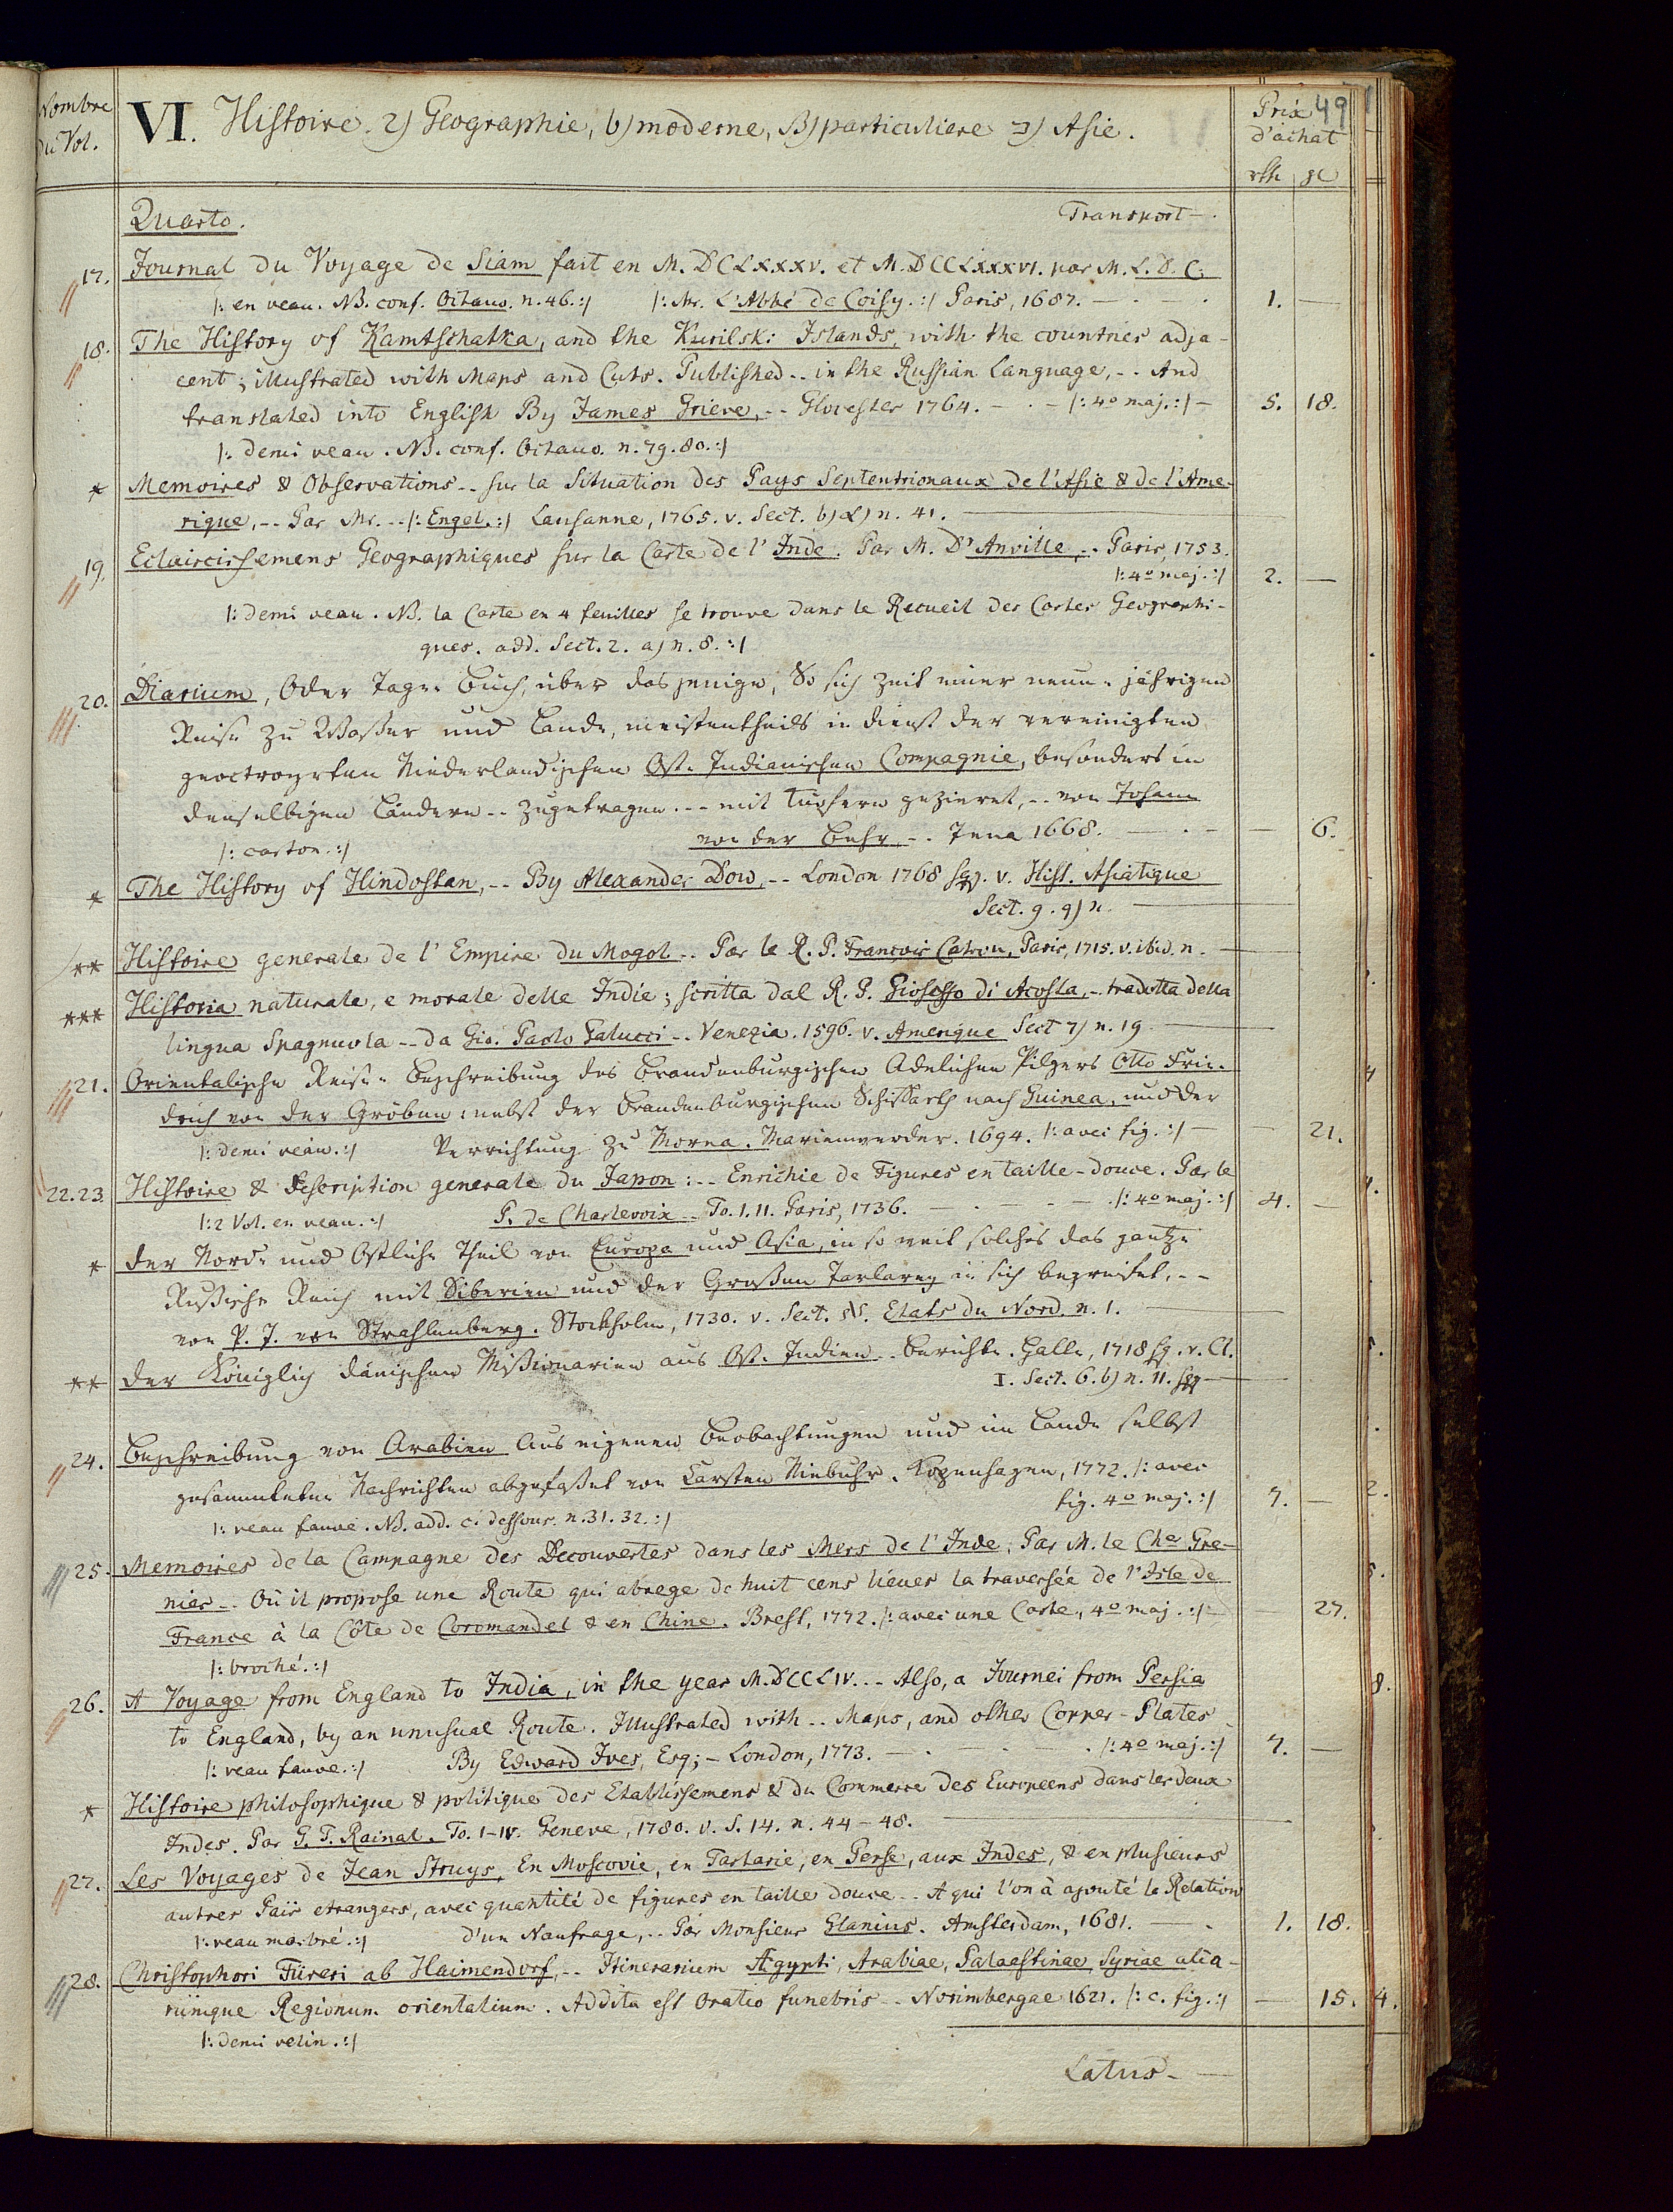 Nombre
du Vol.
VI. Histoire. 2) Geographie, b) moderne, B) particuliere ב) Asie.
Prix 49
d'achat
rth gl
Quarto. Transport -
17. Journal du Voyage de Siam fait en M.DCLXXXV. et M.DCCLXXXVI. par M. L. D. C:
|: en veau. NB. conf. Octauo. n. 46. :| |: Mr. L'Abbé de Coisy. :| Paris, 1687. — 1. —
18. The History of Kamtschatka, and the Kurilski Islands, with the countries adja-
cent; illustrated with Maps and Cuts. Published -- in the Russian Language, -- And
translated into English By James Grieve, -- Glocester 1764. — |: 4o maj. :| — 5. 18.
|: demi veau. NB. conf. Octauo. n. 79. 80. :|
* Memoires & Observations -- sur la Situation des Pays Septentrionaux de l'Asie & de l'Ame-
rique, -- Par Mr. -- |: Engel. :| Lausanne, 1765. v. Sect. b) α) n. 41. —
19. Eclaircissemens Geographiques sur la Carte de l'Inde. Par M. D'Anville, -- Paris, 1753.
|: 4o maj. :| 2. —
|: demi veau. NB. la Carte en 4 feuilles se trouve dans le Recueil des Cartes Geographi-
ques. add. Sect. 2. a) n. 8. :|
20. Diarium, Oder Tage-Buch, über dasjenige, So sich Zeit einer neun-jährigen
Reise zu Wasser und Lande, meistentheils in Dienst der vereinigten
geoctroyrten Niederländischen Ost-Indianischen Compagnie, besonders in
denselbigen Ländern -- zugetragen -- mit Kupfern gezieret, -- von Johann
|: carton. :| von der Behr, -- Jena 1668. — — 6.
* The History of Hindostan, -- By Alexander Dow, -- London 1768 sqq. v. Hist. Asiatique
Sect. 9. q) n. —
** Histoire generale de l'Empire du Mogol -- Par le R. P. François Catrou, Paris, 1715. v. ibid. n. —
*** Historia naturale, e morale delle Indie; scritta dal R. P. Gioseffo di Acosta, -- tradotta della
lingua Spagnuola -- da Gio. Paolo Galucci -- Venezia. 1596. v. Amerique Sect 7) n. 19. —
21. Orientalische Reise-Beschreibung des Brandenburgischen Adelichen Pilgers Otto Frie-
drich von der Gröben: nebst der Brandenburgischen Schiffarth nach Guinea, und der
|: demi veau. :| Verrichtung zu Morea. Marienwerder. 1694. |: avec fig. :| — — 21.
22. 23 Histoire & Description generale du Japon: -- Enrichie de Figures en taille-douce. Par le
|: 2 Vol. en veau. :| P. de Charlevoix -- To. I. II. Paris, 1736. — |: 4o maj. :| 4. —
* Der Nord- und Ostliche Theil von Europa und Asia, in so weit solches das gantze
Rußische Reich mit Siberien und der Großen Tartarey in sich begreiffet, --
von P. J. von Strahlenberg. Stockholm, 1730. v. Sect. Etats du Nord. n. 1. —
** Der Königlich dänischen Mißionarien aus Ost-Indien -- Berichte. Halle, 1718 sq. v. Cl.
I. Sect. 6. b) n. 11. sqq —
24. Beschreibung von Arabien Aus eigenen Beobachtungen und im Lande selbst
gesammleten Nachrichten abgefaßet von Carsten Niebuhr. Kopenhagen, 1772. |: avec
fig. 4o maj. :| 7. —
|: veau fauve. NB. add. ci dessous. n. 31. 32. :|
25. Memoires de la Campagne des Decouvertes dans les Mers de l'Inde; Par M. le Cher Gre-
nier -- Où il propose une Route qui abrege de huit cens lieues la traversée de l'Isle de
France à la Côte de Coromandel & en Chine. Brest, 1772. |: avec une Carte, 4o maj. :| — — 27.
|: broché. :|
26. A Voyage from England to India, in the year M.DCCLIV. -- Also, a Journei from Persia
to England, by an unusual Route. Illustrated with -- Maps, and other Copper-Plates
|: veau fauve. :| By Edward Ives, Esq; — London, 1773. — |: 4o maj. :| 7. —
* Histoire philosophique & politique des Etablissemens & du Commerce des Europeens dans les deux
Indes. Par G. T. Rainal. To. I-IV. Geneve, 1780. v. S. 14. n. 44-48. —
27. Les Voyages de Jean Struys, En Moscovie, en Tartarie, en Perse, aux Indes, & en plusieurs
autres Païs etrangers, avec quantité de figures en taille douce -- A qui l'on à ajouté la Relation
|: veau marbré. :| d'un Naufrage, -- Par Monsieur Glanius. Amsterdam, 1681. — 1. 18.
28. Christophori Füreri ab Haimendorf, -- Itinerarium Ægypti, Arabiae, Palaestinae, Syriae alia-
rumque Regionum orientalium. Addita est Oratio funebris -- Norimbergae 1621. |: c. fig. :| — 15.
|: demi velin. :|
Latus —